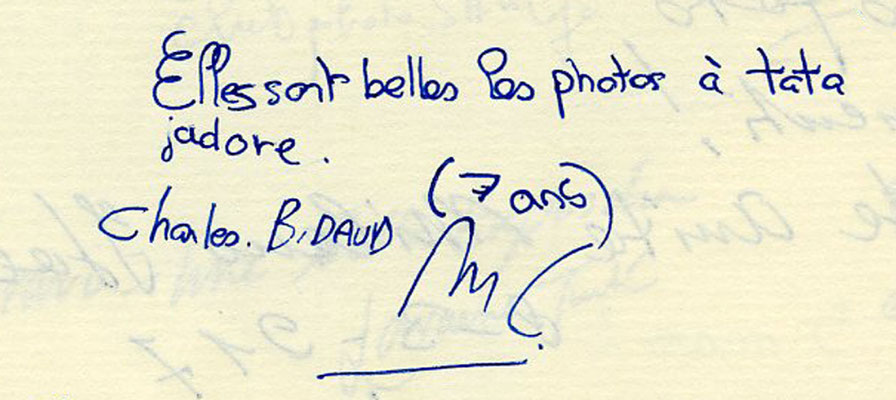 Elles sont belles les photos à tata
jadore.
Charles. BiDAUD (7 ans)